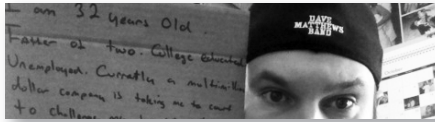 I am 32 years Old
Father of two. College educated
Unemployed. Currently a multimillion
dollar company is taking me to court
to challenge
DAVE
MATTHEWS
BAND